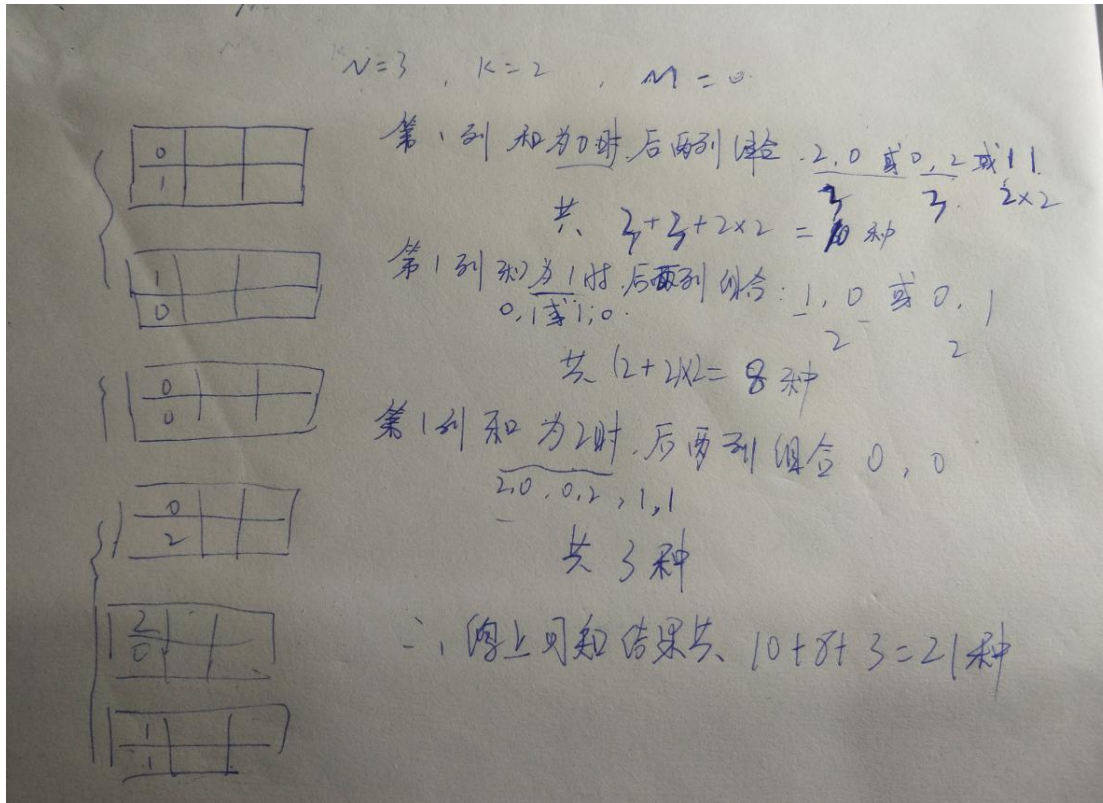 N=3 , K=2 , M=0
第1列和为0时,后两列组合.2,0或0,2或11.
3 3. 2×2
共 3+3+2×2=10种
第1列和为1时,后两列组合:1,0或0,1
0,1或1,0. 2 2
共(2+2)×2=8种
第1列和为2时,后两列组合0,0
2,0,0,2,1,1
共3种
∴综上可知结果共 10+8+3=21种
0
1
1
0
0
0
0
2
2
0
1
1